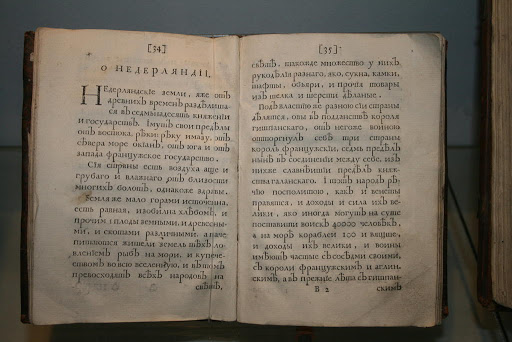 [34]
О НЕДЕРЛЯНДІИ,
Недерланскіе земли, яже отъ
древнихъ временъ раздѣлиша-
ся въ седмьнадесять княженіи
и государствъ. Імутъ свои предѣлы
отъ востока, рѣки: рѣку имазу, отъ
сѣвера море окіанъ, отъ юга и отъ
запада французское государство.
Сія страны есть воздуха аще и
грубаго и влажнаго ради близости
многихъ болотъ, однакоже здравы.
Земля же мало горами исполнена,
есть равная, изобилна хлѣбомъ, и
прочими плоды земными, и древесны-
ми, и скотами различными, а наче-
жители земель тѣхъ ло-
вленіемъ рыбъ на мори, и купече-
ствомъ во всю вселенную, и въ томъ
превосходятъ всѣхъ народовъ на
свѣтѣ,
[35]
свѣтѣ, такожде множество у нихъ
рукодѣлія разнаго, яко, сукна, камки,
тафты, объяри, и прочія товары
изъ шелка и шерсти дѣланые.
Подъ властію же разною сіи страны
дѣлятся, овы въ подданствѣ короля
гишпанскаго, отъ негоже воиною
отторгнулъ себѣ три страны
король французскій, седмь предѣлъ
въ соединеніи между себе, изъ
нихже славнѣишіи предѣлъ княж-
ства галанскаго. І тѣхъ народъ рѣ-
чію посполитою, какъ и венеты
правятся, и доходы и сила ихъ ве-
лики, ако иногда могутъ на суше
поставити воискъ 40000 человѣкъ,
а на морѣ кораблеи 100 и вящше,
и доходы ихъ велики, и воины
имѣютъ частые съ сосѣдами своими,
съ короли французскимъ и аглин-
скимъ, а въ прежніе лѣта съ гишпан-
В 2
скимъ